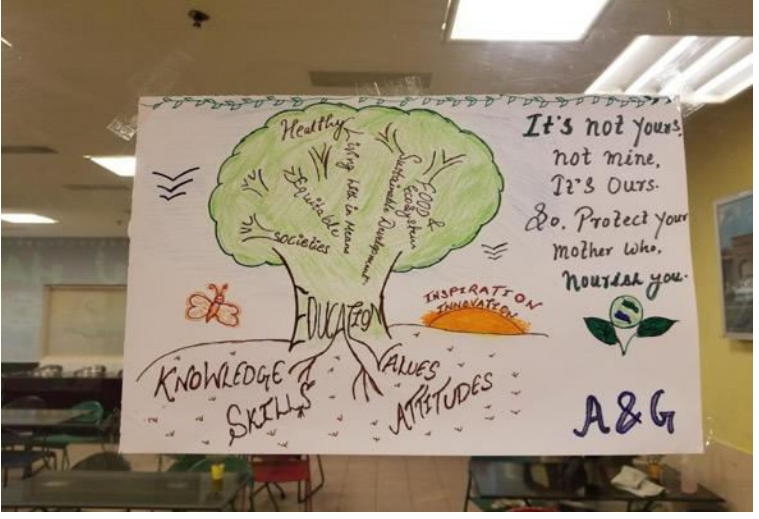 Healthy
Living with in Means
Equitable
Societies
Sustainable Development
FOOD &
Ecosystem
EDUCATION
INSPIRATION
INNOVATION
KNOWLEDGE
SKILLS
VALUES
ATTITUDES
It's not yours,
not mine,
It's Ours.
So, Protect your
Mother who,
Nourish you.
A & G